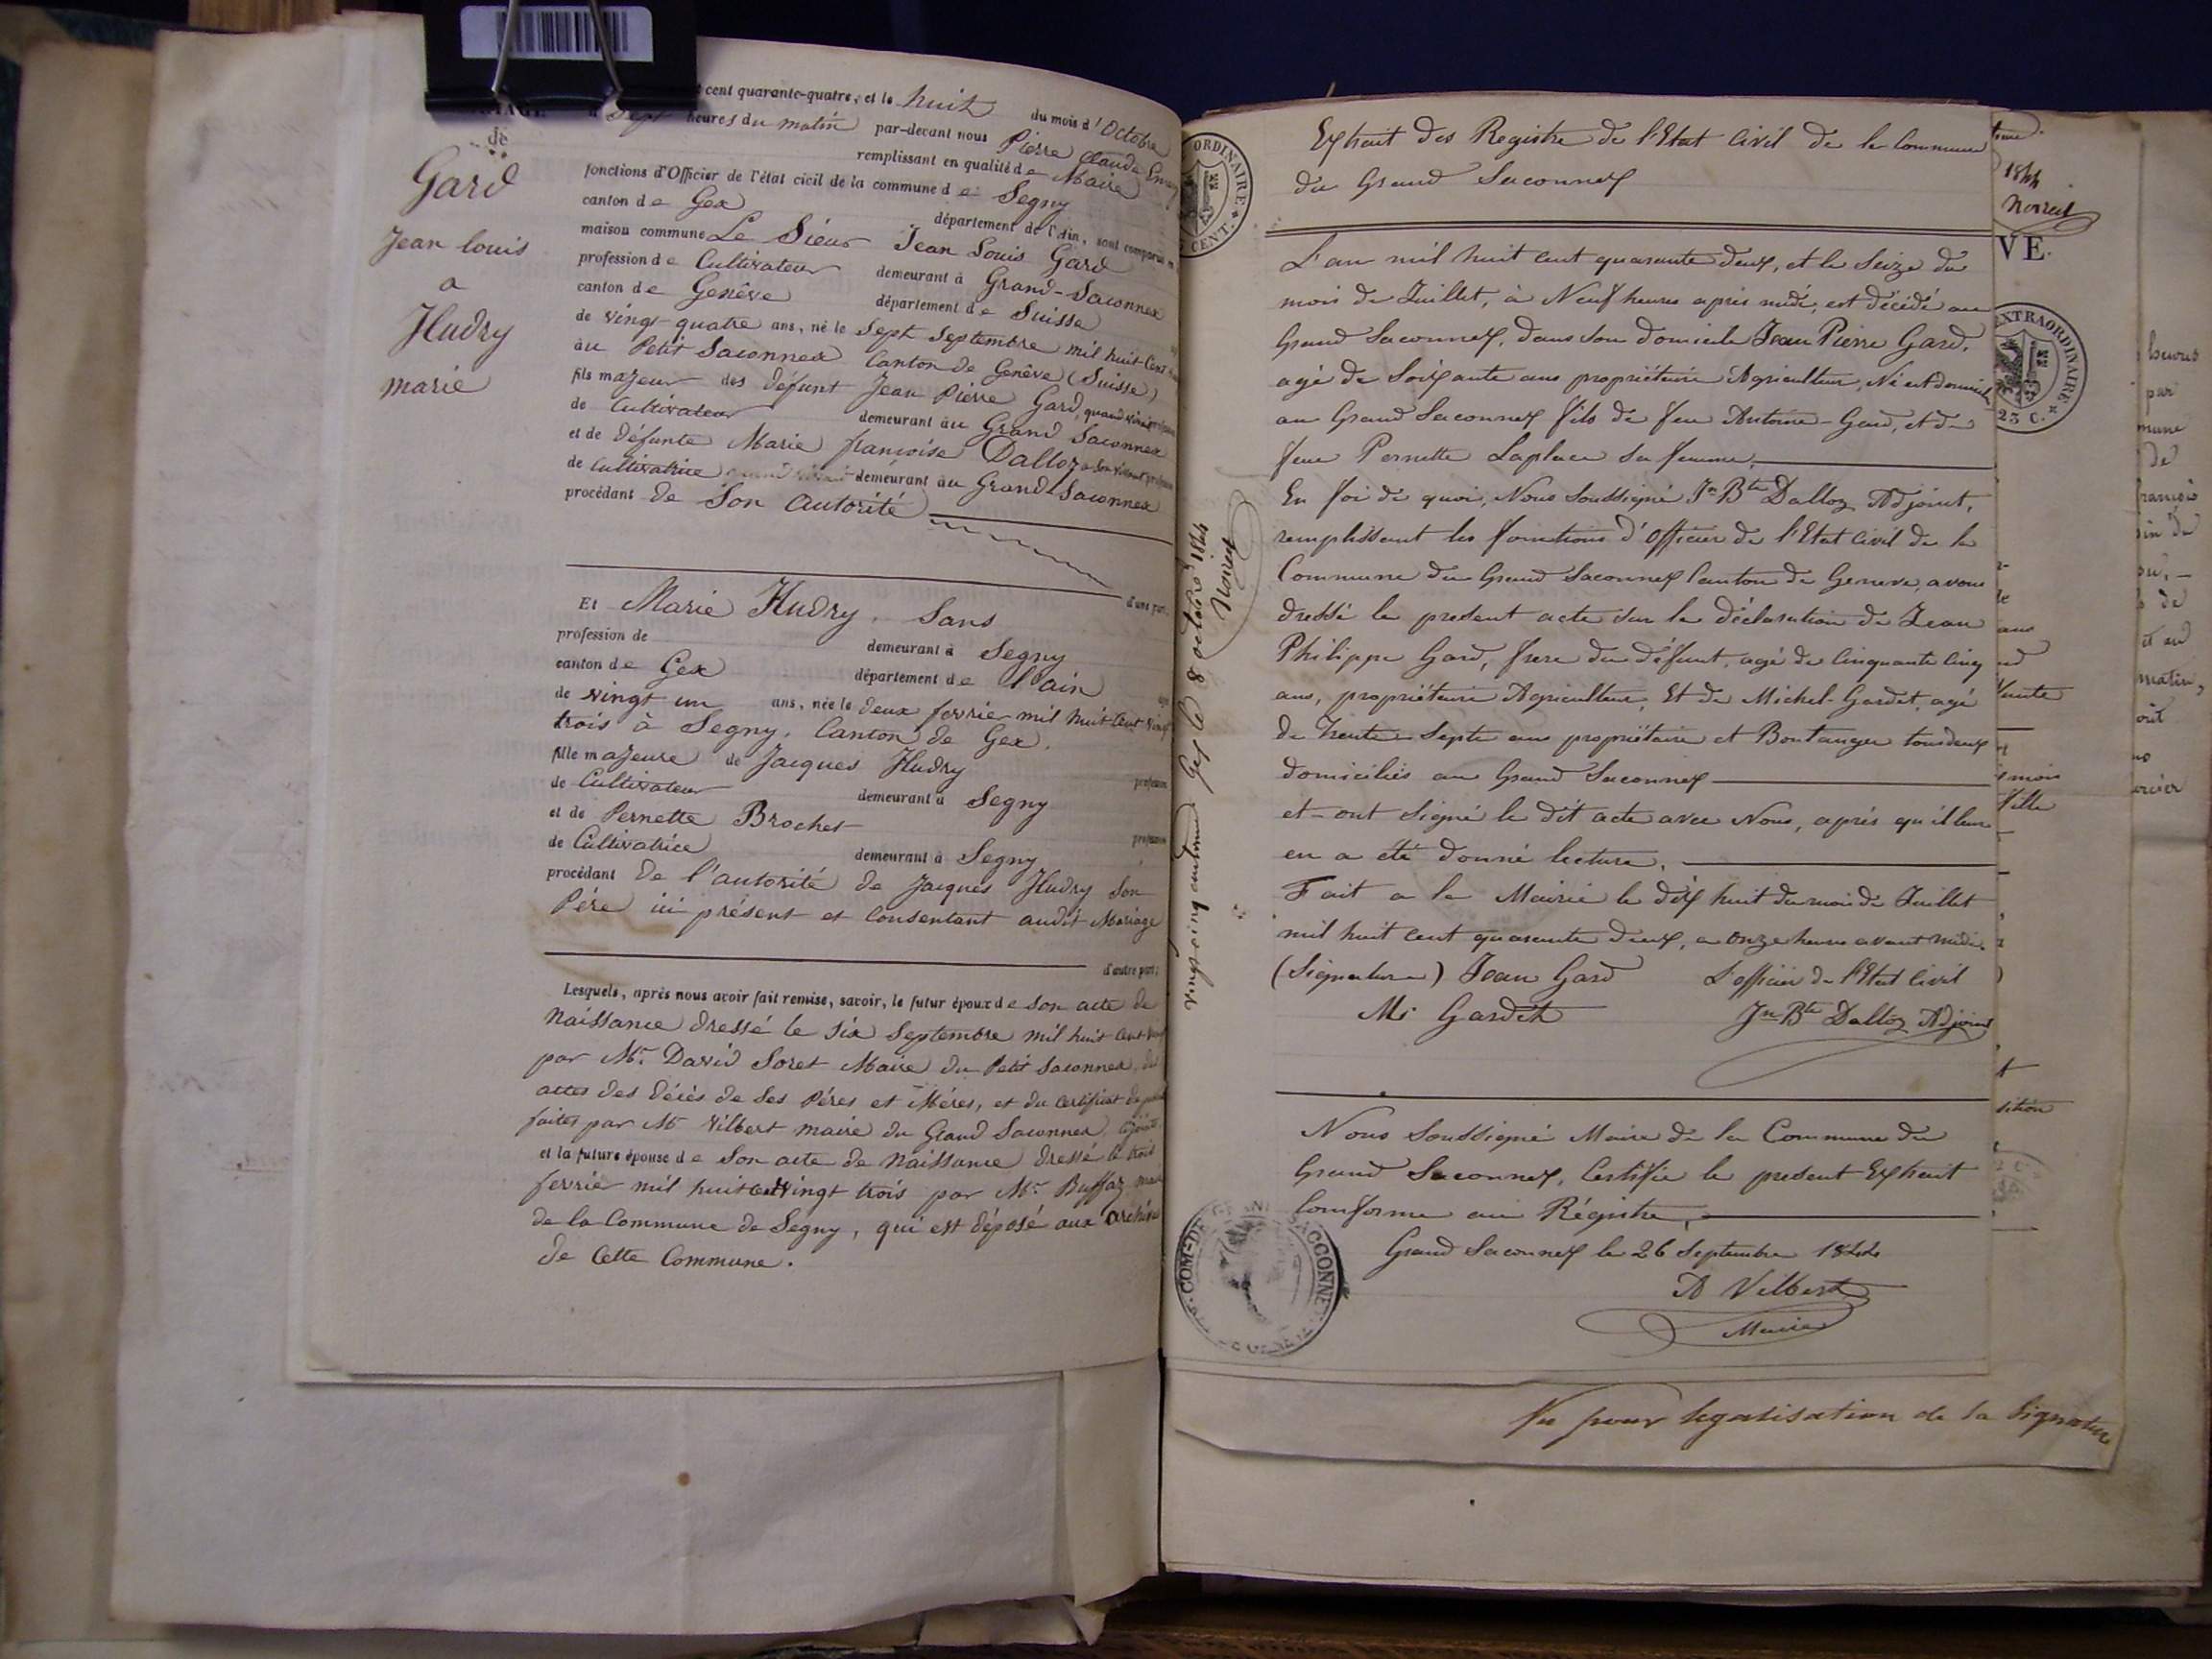 cent quarante-quatre, et le huit du mois d'Octobre
à Sept heures du matin par-devant nous Pierre Claude
remplissant en qualité de Maire
fonctions d'Officier de l'état civil de la commune de Segny
canton de Gex département de l'Ain, sont comparus en
maison commune Le Sieur Jean Louis Gard
profession de Cultivateur demeurant à Grand-Saconnex
canton de Genêve département de Suisse
de vingt-quatre ans, né le Sept Septembre mil huit Cent
au Petit Saconnex Canton de Genêve (Suisse)
fils majeur des défunt Jean Pierre Gard, quand vivait
de Cultivateur demeurant au Grand Saconnex
et de défunte Marie françoise Dalloz
de Cultivatrice demeurant au Grand Saconnex
procédant de Son Autorité
d'une part,
de
Gard
Jean louis
a
Hudry
marie
Et Marie Hudry, Sans
profession de demeurant à Segny
canton de Gex département de l'ain
de vingt un ans, née le deux fevrier mil huit Cent vingt
trois à Segny, Canton de Gex.
fille majeure de Jacques Hudry
profession
de Cultivateur demeurant à Segny
et de Pernette Brochet
profession
de Cultivatrice demeurant à Segny
procédant de l'autorité de Jacques Hudry Son
Pére ici présent et Consentant audit Mariage
d'autre part;
Lesquels, après nous avoir fait remise, savoir, le futur époux de Son acte de
Naissance dressé le Six Septembre mil huit Cent
par Mr. David Soret Maire du Petit Saconnex,
actes des décès de Ses Péres et Méres, et du certificat de
faites par Mr Vilbert maire du Grand Saconnex
et la future épouse de Son acte de Naissance dressé le trois
fevrier mil huit cent vingt trois par Mr. Buffaz
de la Commune de Segny, qui est déposé aux archives
de Cette Commune.
ORDINAIRE
CENT.
Vingt-cinq centimes Gex le 8 octobre 1844
Noirex
Extrait des Registre de l'Etat Civil de la Commune
du Grand Saconnex
L'an mil huit cent quarante deux, et le Seize du
mois de Juillet, à Neuf heures après midi, est décédé au
Grand Saconnex, dans son domicile Jean Pierre Gard,
agé de Soixante ans propriétaire Agriculteur, Né et
au Grand Saconnex fils de feu Antoine Gard, et de
feue Pernette Laplace sa femme,
En foi de quoi, Nous Soussigné Jn Bte Dalloz Adjoint,
remplissant les fonctions d'Officier de l'Etat Civil de la
Commune du Grand Saconnex Canton de Geneve, avons
dressé le present acte sur la déclaration de Jean
Philippe Gard, frere du défunt, agé de Cinquante Cinq
ans, propriétaire Agriculteur, Et de Michel Gardet, agé
de Trente Septe ans propriétaire et Boulanger tous deux
domiciliés au Grand Saconnex
et ont Signé le dit acte avec Nous, après qu'il leur
en a été donné lecture,
Fait a la Mairie le dix huit du mois de Juillet
mil huit cent quarante deux, a onze heures avant midi.
(Signature) Jean Gard L'officier de l'Etat Civil
Mi Gardet Jn Bte Dalloz Adjoint
Nous Soussigné Maire de la Commune du
Grand Saconnex, Certifie le present Extrait
Comforme au Régistre,
Grand Saconnex le 26 Septembre 1844
A Vilbert
Maire
COM-DE
SACCONNE
Vu pour legalisation de la Signature
1844
VE.
EXTRAORDINAIRE
25 C.
heures
par
de
de
matin,
mois
fille